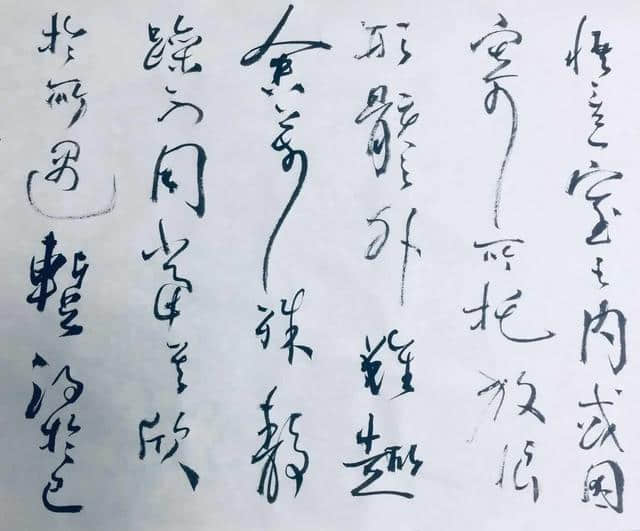 悟言一室之内或因
寄所托放浪
形骸之外雖趣
舍萬殊静
躁不同當其欣
於所遇暫得於己